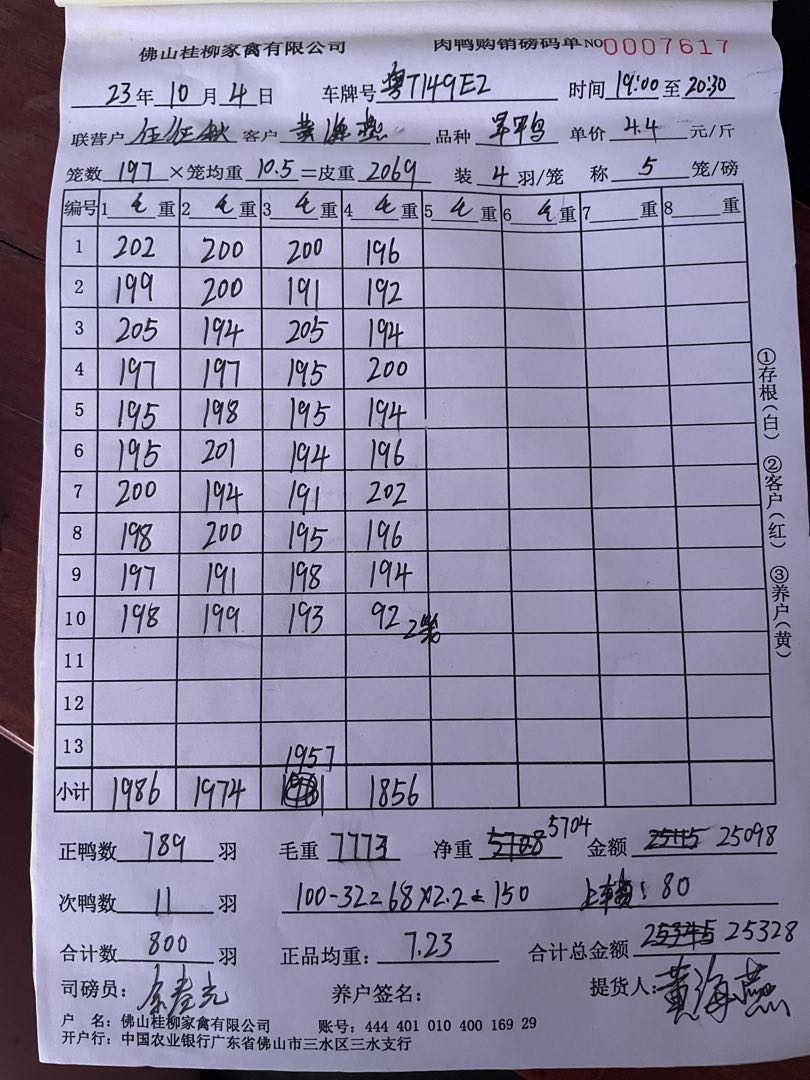 佛山桂柳家禽有限公司 肉鸭购销磅码单 NO 0007617
23年10月4日 车牌号 粤T149E2 时间 19:00 至 20:30
联营户 客户 黄海燕 品种 旱平鸟 单价 4.4 元/斤
笼数 197 ×笼均重 10.5 =皮重 2069 装 4 羽/笼 称 5 笼/磅
编号 1 毛 重 2 毛 重 3 毛 重 4 毛 重 5 毛 重 6 毛 重 7 重 8 重
1 202 200 200 196
2 199 200 191 192
3 205 194 205 194
4 197 197 195 200
5 195 198 195 194
6 195 201 194 196
7 200 194 191 202
8 198 200 195 196
9 197 191 198 194
10 198 199 193 92 2笼
11
12
13 1957
小计 1986 1974 1856
正鸭数 789 羽 毛重 7773 净重 5708 5704 金额 25115 25098
次鸭数 11 羽 100-32=68×2.2=150 上车费: 80
合计数 800 羽 正品均重: 7.23 合计总金额 25345 25328
司磅员: 养户签名: 提货人: 黄海燕
户 名: 佛山桂柳家禽有限公司 账号: 444 401 010 400 169 29
开户行: 中国农业银行广东省佛山市三水区三水支行
①存根(白) ②客户(红) ③养户(黄)